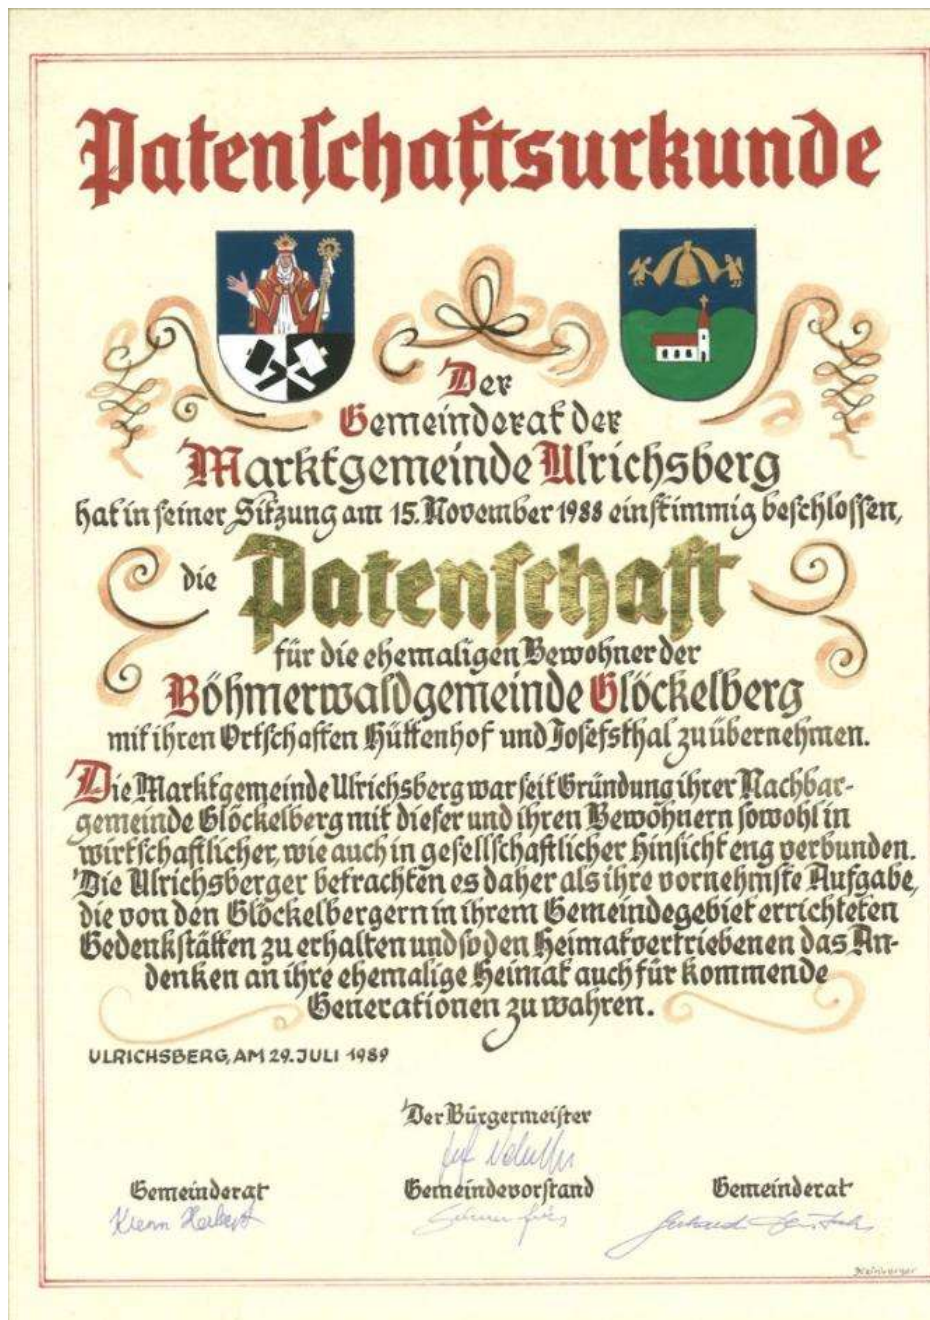 Patenschaftsurkunde
Der
Gemeinderat der
Marktgemeinde Ulrichsberg
hat in seiner Sitzung am 15. November 1988 einstimmig beschlossen,
die Patenschaft
für die ehemaligen Bewohner der
Böhmerwaldgemeinde Glöckelberg
mit ihren Ortschaften Hüttenhof und Josefsthal zu übernehmen.
Die Marktgemeinde Ulrichsberg war seit Gründung ihrer Nachbar-
gemeinde Glöckelberg mit dieser und ihren Bewohnern sowohl in
wirtschaftlicher, wie auch in gesellschaftlicher Hinsicht eng verbunden.
Die Ulrichsberger betrachten es daher als ihre vornehmste Aufgabe,
die von den Glöckelbergern in ihrem Gemeindegebiet errichteten
Gedenkstätten zu erhalten und so den Heimatvertriebenen das An-
denken an ihre ehemalige Heimat auch für kommende
Generationen zu wahren.
ULRICHSBERG, AM 29. JULI 1989
Der Bürgermeister
Gemeinderat Gemeindevorstand Gemeinderat
Krenn Herbert